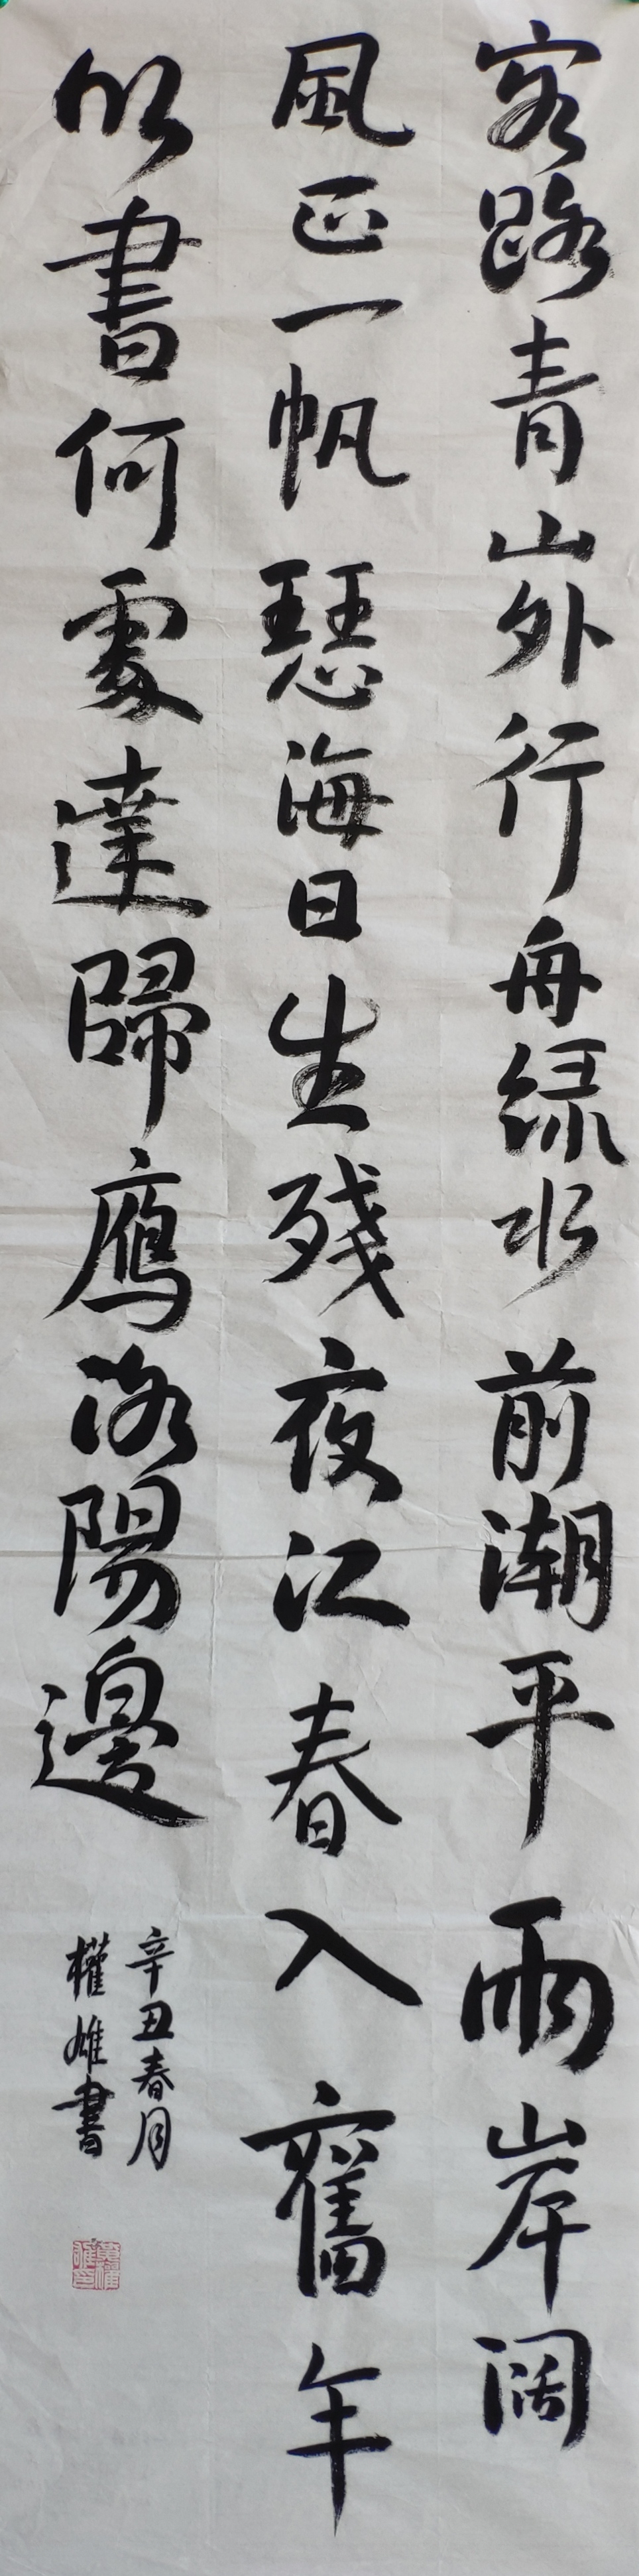 客路青山外行舟绿水前潮平兩岸阔
風正一帆瑟海日生殘夜江春入舊年
鄉書何處達歸鴈洛陽邊
辛丑春月
權雄書